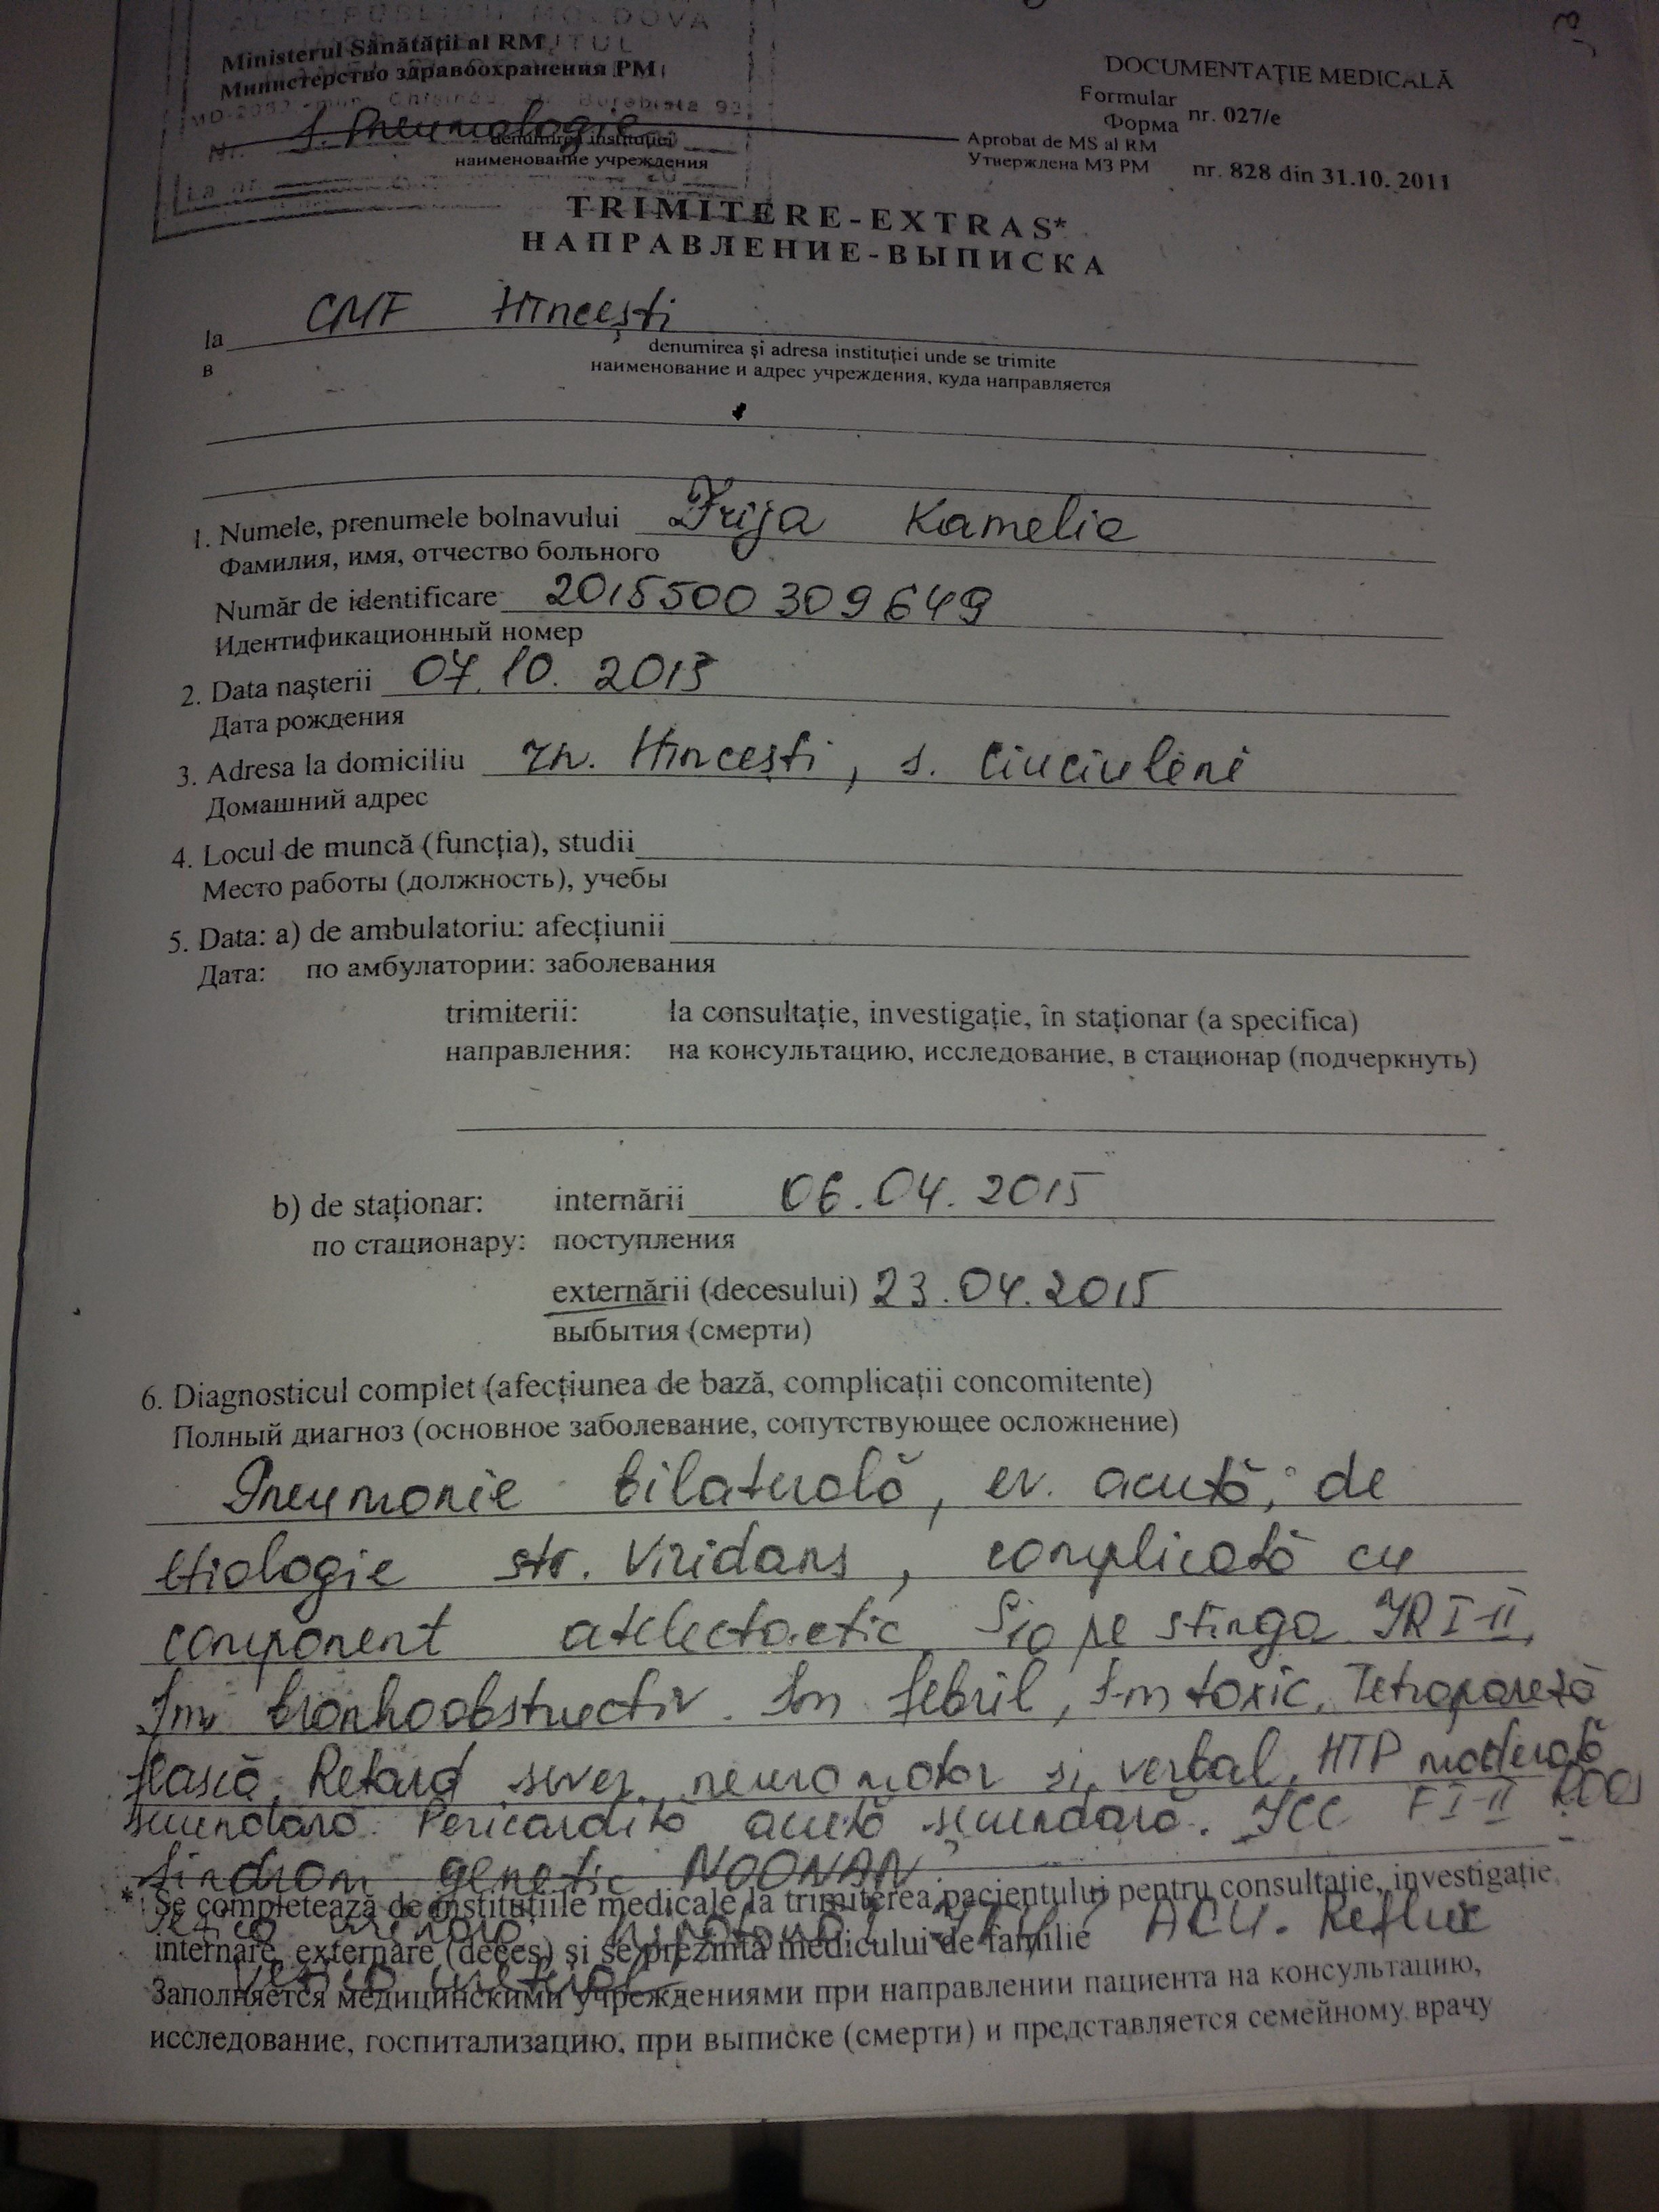 AL REPUBLICII MOLDOVA
Ministerul Sănătăţii al RM
Министерство здравоохранения РМ
DOCUMENTAŢIE MEDICALĂ
Formular
Форма nr. 027/e
Aprobat de MS al RM
Утверждена МЗ РМ nr. 828 din 31.10. 2011
S. Pneumologie
denumirea instituţiei
наименование учреждения
TRIMITERE-EXTRAS*
НАПРАВЛЕНИЕ-ВЫПИСКА
la CMF Hînceşti
в
denumirea şi adresa instituţiei unde se trimite
наименование и адрес учреждения, куда направляется
1. Numele, prenumele bolnavului Frija Kamelia
Фамилия, имя, отчество больного
Număr de identificare 2015500309649
Идентификационный номер
2. Data naşterii 07.10.2013
Дата рождения
3. Adresa la domiciliu rn. Hînceşti, s. Ciuciuleni
Домашний адрес
4. Locul de muncă (funcţia), studii
Место работы (должность), учебы
5. Data: a) de ambulatoriu: afecţiunii
Дата: по амбулатории: заболевания
trimiterii: la consultaţie, investigaţie, în staţionar (a specifica)
направления: на консультацию, исследование, в стационар (подчеркнуть)
b) de staţionar: internării 06.04.2015
по стационару: поступления
externării (decesului) 23.04.2015
выбытия (смерти)
6. Diagnosticul complet (afecţiunea de bază, complicaţii concomitente)
Полный диагноз (основное заболевание, сопутствующее осложнение)
Pneumonie bilaterală, ev. acută, de
etiologie str. Viridans, complicată cu
component atelectactic S10 pe stînga IR I-II,
S-m bronhoobstructiv. S-m febril, S-m toxic. Tetrapareză
flască. Retard sever neuromotor si verbal. HTP moderată
secundară. Pericardită acută secundară. ICC F I-II ROSS
Sindrom genetic NOONAN?
* Se completează de instituţiile medicale la trimiterea pacientului pentru consultaţie, investigaţie,
ACU. Reflux
internare, externare (deces) şi se prezintă medicului de familie
vezico ureteral
Заполняется медицинскими учреждениями при направлении пациента на консультацию,
исследование, госпитализацию, при выписке (смерти) и представляется семейному врачу